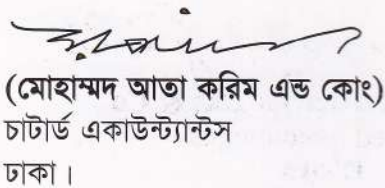 (মোহাম্মদ আতা করিম এন্ড কোং)
চাটার্ড একাউন্ট্যান্টস
ঢাকা।